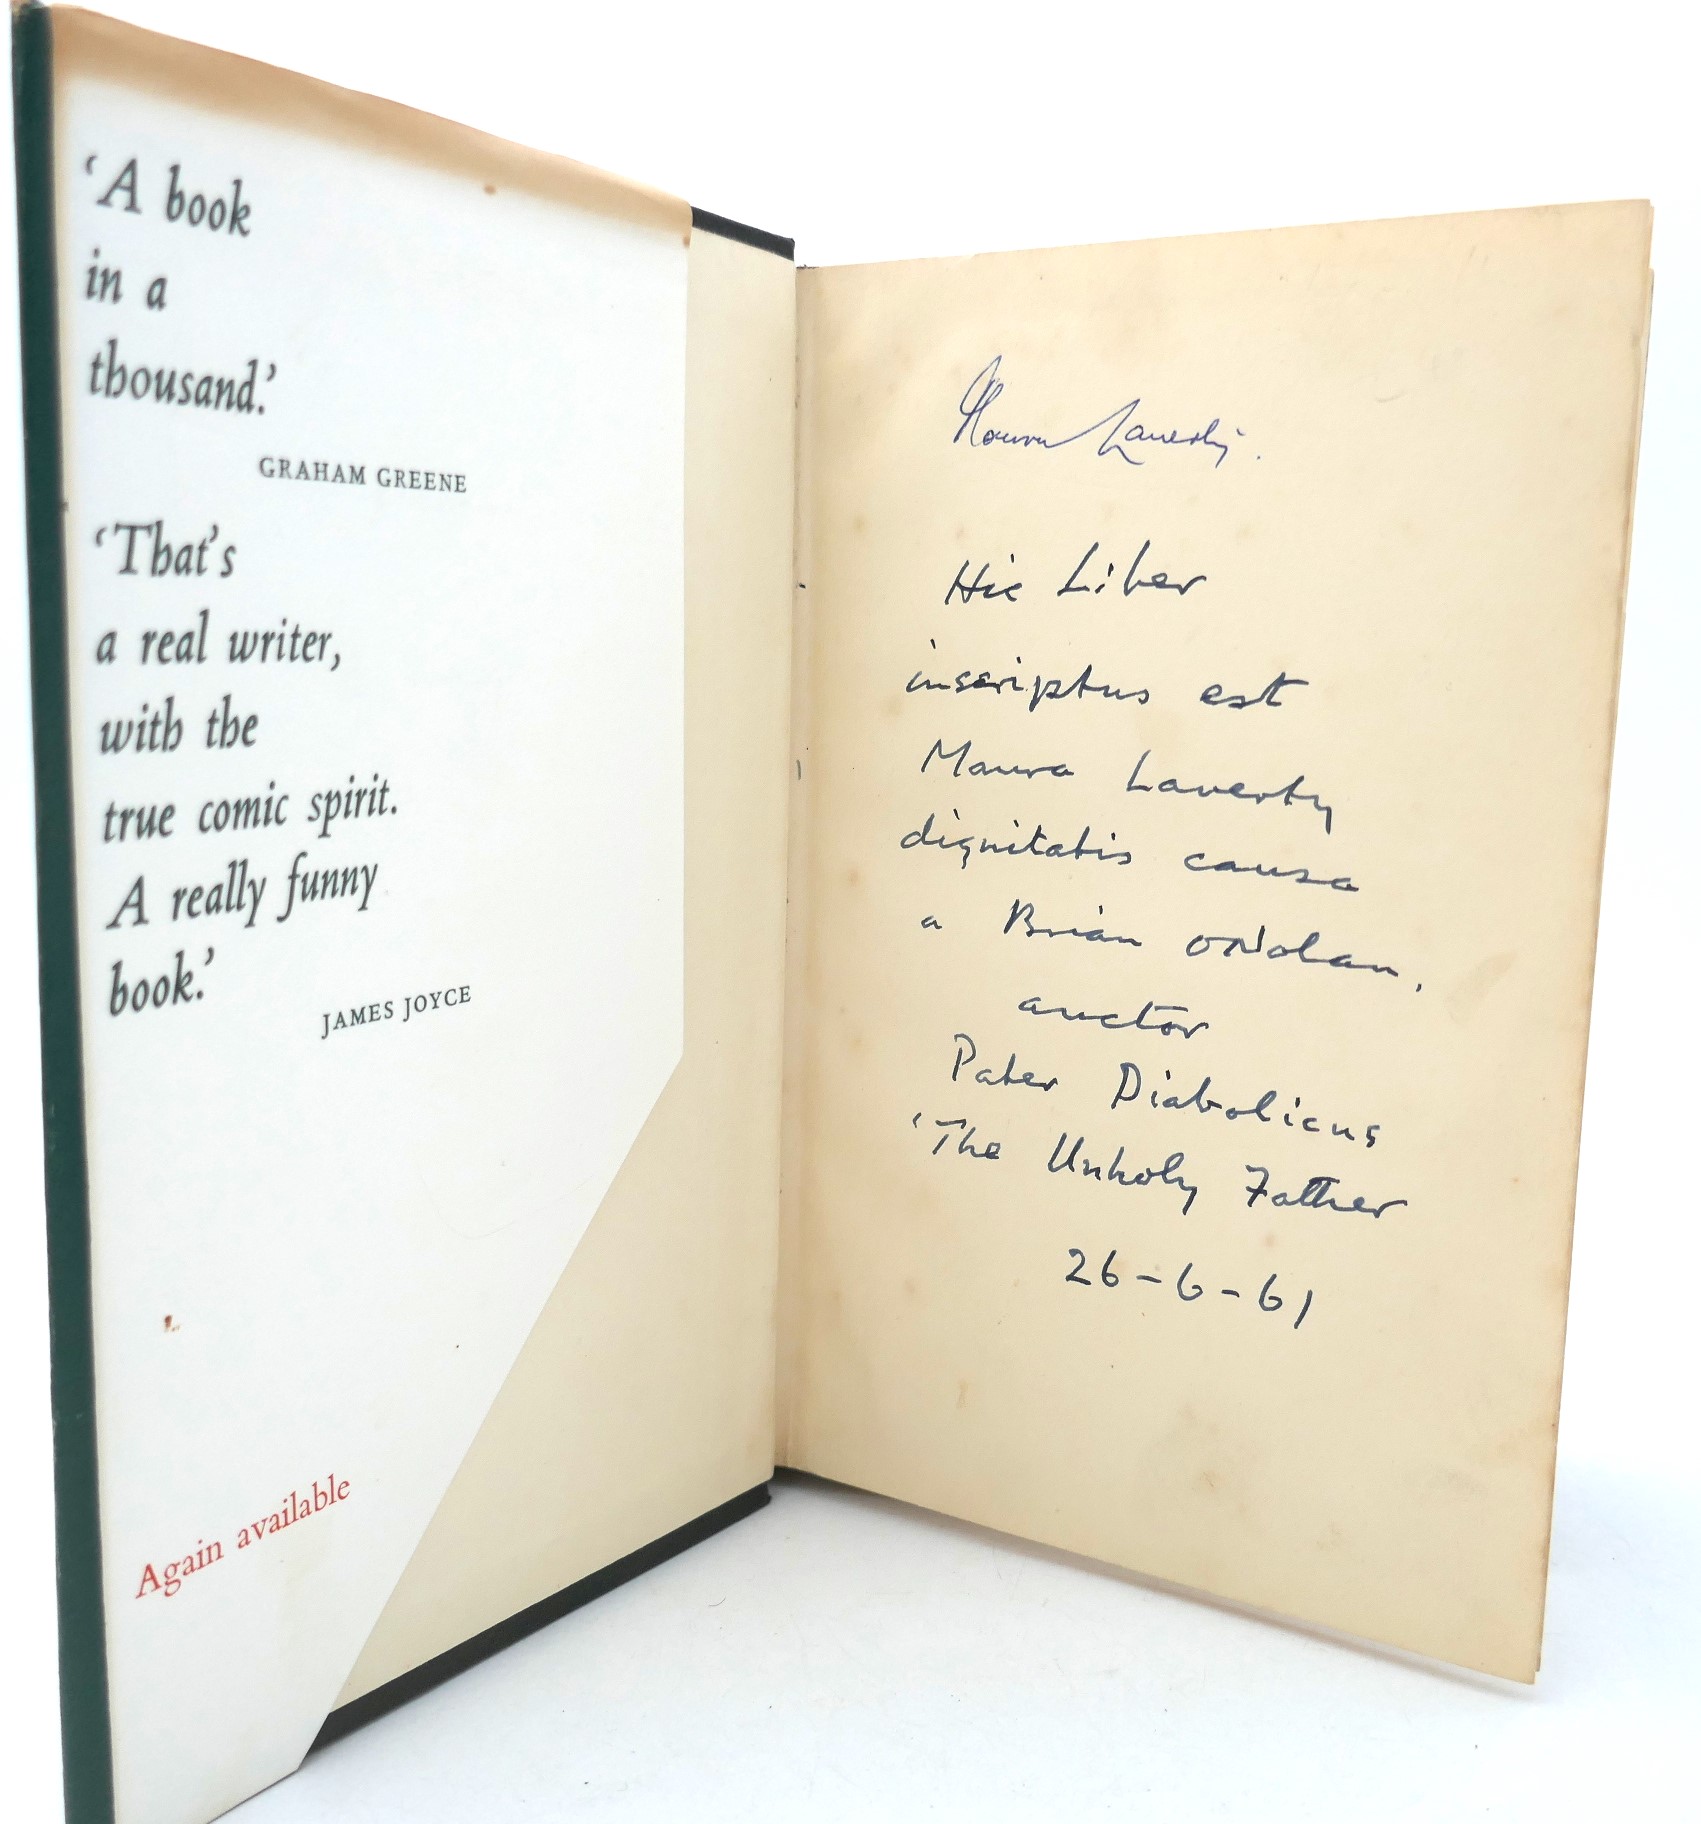 ‘A book
in a
thousand.’
GRAHAM GREENE
‘That’s
a real writer,
with the
true comic spirit.
A really funny
book.’
JAMES JOYCE
Again available
Maura Laverty.
Hic Liber
inscriptus est
Maura Laverty
dignitatis causa
a Brian ONolan,
auctor
Pater Diabolicus
‘The Unholy Father
26-6-61